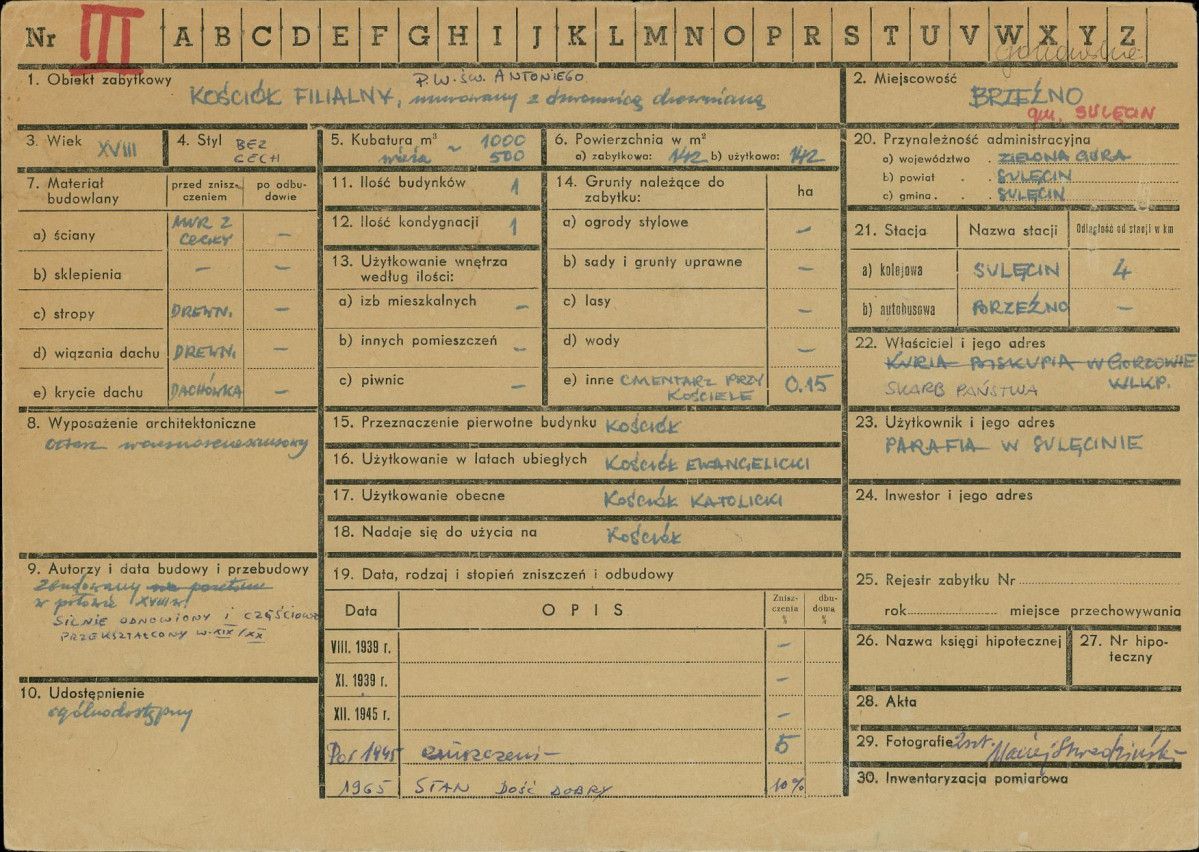 Nr III A B C D E F G H I J K L M N O P R S T U V W X Y Z
1. Obiekt zabytkowy P.W. ŚW. ANTONIEGO
KOŚCIÓŁ FILIALNY, murowany z dzwonnicą drewnianą
2. Miejscowość
BRZEŹNO
gm. SULĘCIN
3. Wiek XVIII
4. Styl BEZ
CECH
5. Kubatura m³ 1000
wieża ~ 500
6. Powierzchnia w m²
a) zabytkowa: 142 b) użytkowa: 142
7. Materiał budowlany
przed zniszczeniem
po odbudowie
a) ściany MUR Z CEGŁY —
b) sklepienia — —
c) stropy DREWN. —
d) wiązania dachu DREWN. —
e) krycie dachu DACHÓWKA —
8. Wyposażenie architektoniczne
ołtarz
9. Autorzy i data budowy i przebudowy
Zbudowany
w połowie XVIII w.
SILNIE ODNOWIONY I CZĘŚCIOWO
PRZEKSZTAŁCONY W XIX/XX
10. Udostępnienie
ogólnodostępny
11. Ilość budynków 1
12. Ilość kondygnacji 1
13. Użytkowanie wnętrza
według ilości:
a) izb mieszkalnych —
b) innych pomieszczeń —
c) piwnic —
14. Grunty należące do
zabytku: ha
a) ogrody stylowe —
b) sady i grunty uprawne —
c) lasy —
d) wody —
e) inne CMENTARZ PRZY
KOŚCIELE 0.15
15. Przeznaczenie pierwotne budynku KOŚCIÓŁ
16. Użytkowanie w latach ubiegłych KOŚCIÓŁ EWANGELICKI
17. Użytkowanie obecne KOŚCIÓŁ KATOLICKI
18. Nadaje się do użycia na KOŚCIÓŁ
19. Data, rodzaj i stopień zniszczeń i odbudowy
Data OPIS Zniszczenia % dbudowa %
VIII. 1939 r. —
XI. 1939 r. —
XII. 1945 r. —
Po r 1945 5
1965 STAN DOŚĆ DOBRY 10%
20. Przynależność administracyjna
a) województwo . ZIELONA GÓRA
b) powiat . . SULĘCIN
c) gmina . . SULĘCIN
21. Stacja Nazwa stacji Odległość od stacji w km
a) kolejowa SULĘCIN 4
b) autobusowa BRZEŹNO —
22. Właściciel i jego adres
KURIA BISKUPIA W GORZOWIE
WLKP.
SKARB PAŃSTWA
23. Użytkownik i jego adres
PARAFIA W SULĘCINIE
24. Inwestor i jego adres
25. Rejestr zabytku Nr
rok miejsce przechowywania
26. Nazwa księgi hipotecznej
27. Nr hipoteczny
28. Akta
29. Fotografie 2 szt.
30. Inwentaryzacja pomiarowa